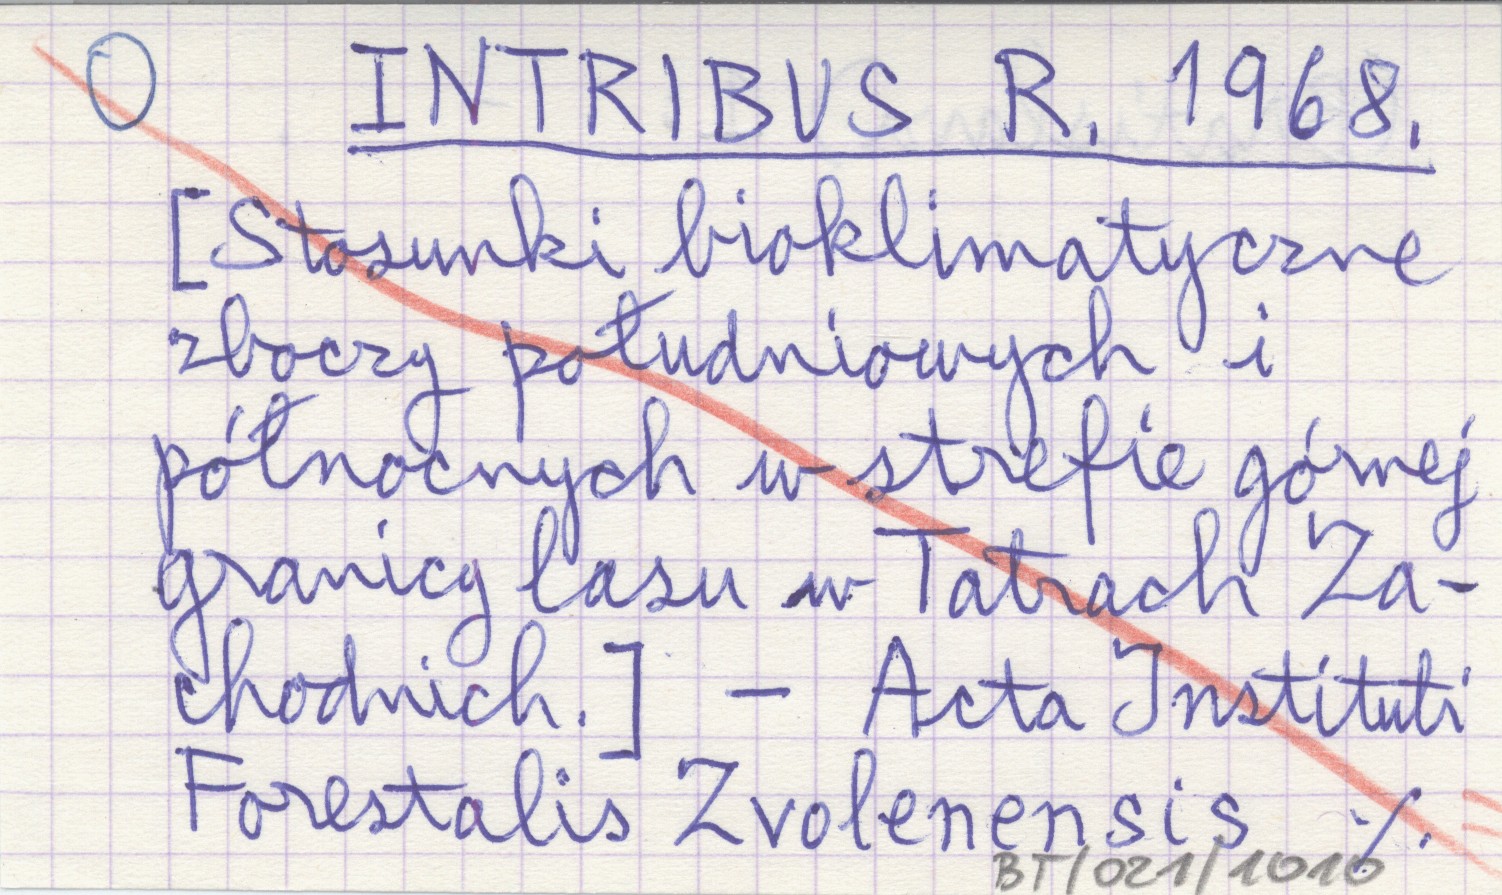 O INTRIBUS R. 1968.
[Stosunki bioklimatyczne
zboczy południowych i
północnych w strefie górnej
granicy lasu w Tatrach Za-
chodnich.] - Acta Instituti
Forestalis Zvolenensis ./.
BT/021/1010